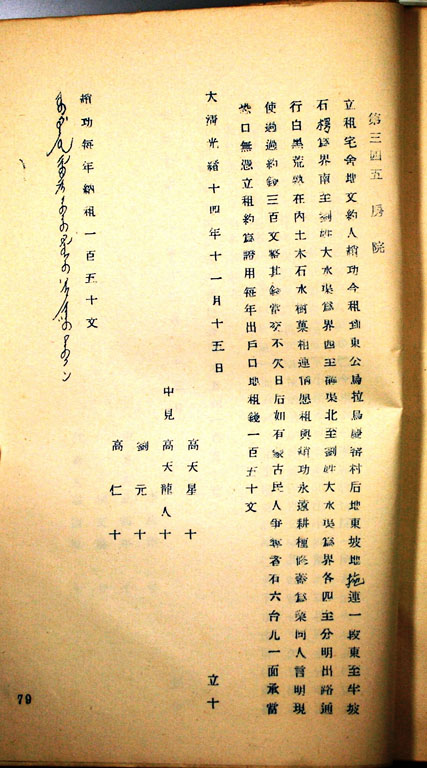 第三四五 房院
立租宅舍地文約人續功今租到東公烏拉烏慶審村后地東坡地拖連一段東至半坡
石楞為界南至劉姓大水渠為界西至溝渠北至劉姓大水渠為界各四至分明出路通
行白黑荒熟在內土木石水樹菓相連情愿租與續功永遠耕種修蓋為業同人言明現
使過過約錢三百文整其錢當交不欠日后如石蒙古民人爭奪者石六台几一面承當
恐口無憑立租約為證用每年出戶口地租錢一百五十文
大清光緒十四年十一月十五日 立十
高天星 十
中見 高天龍人十
劉元 十
高仁 十
續功每年納租一百五十文
79